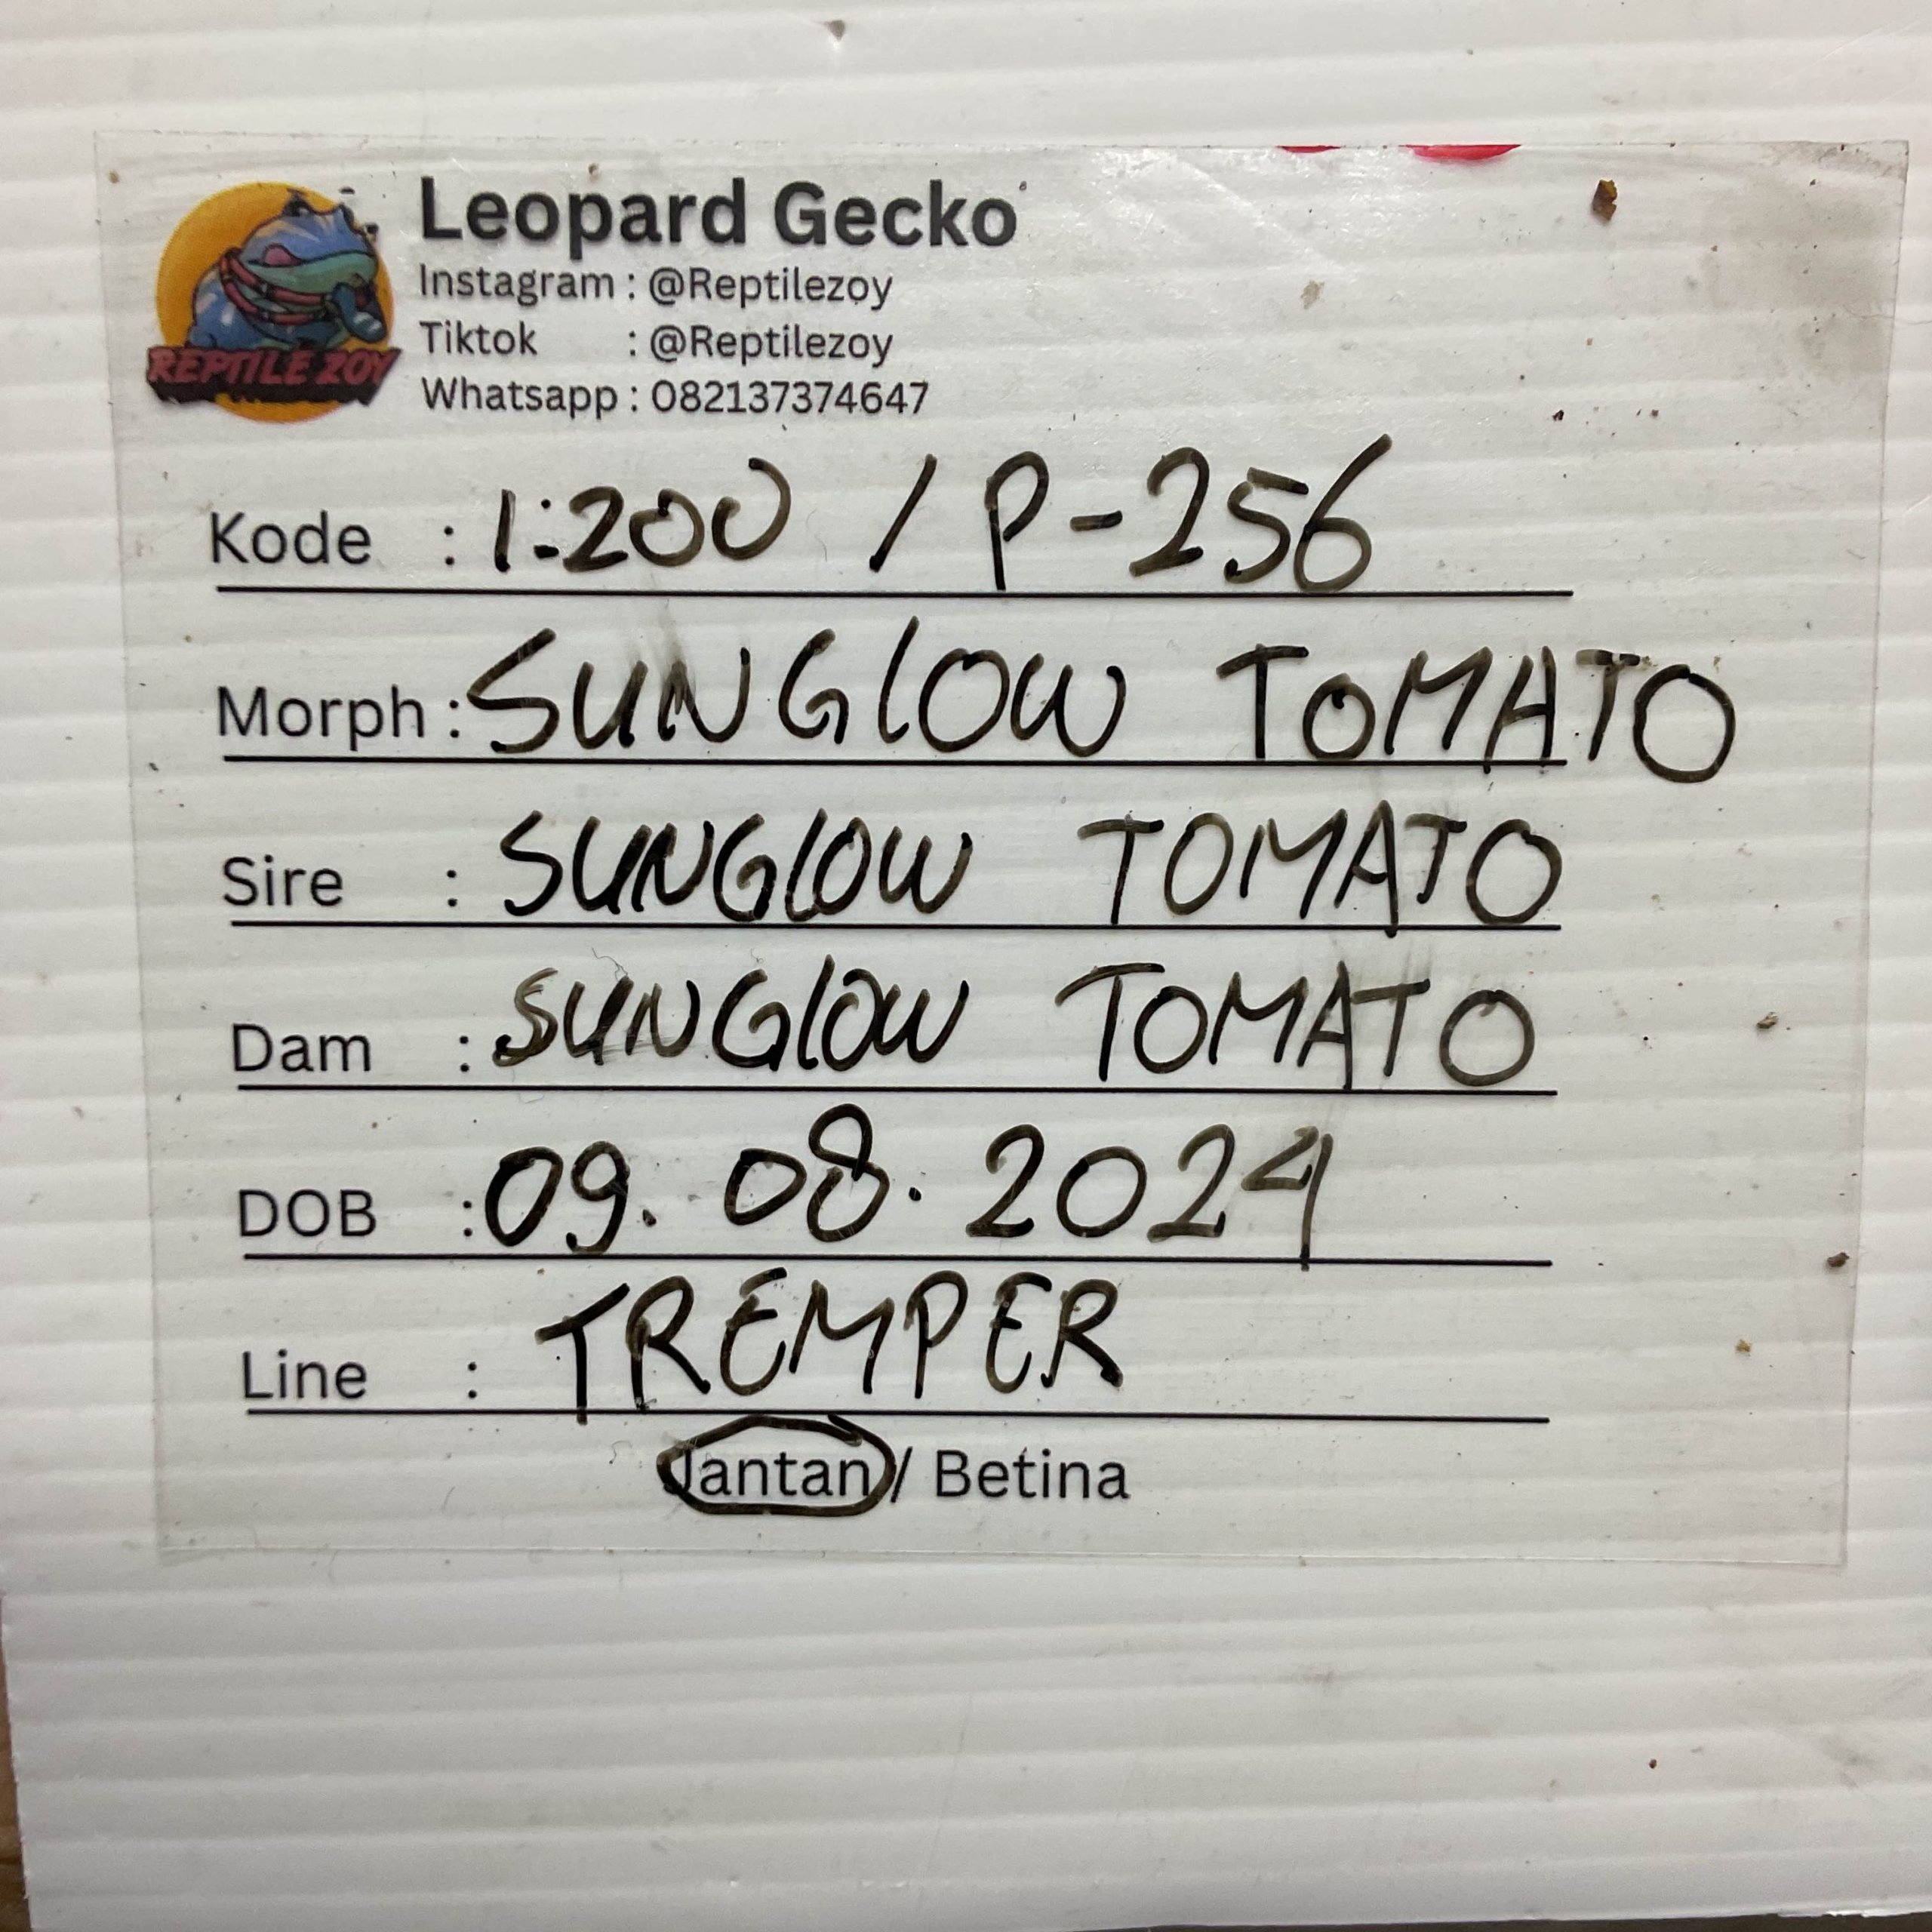 REPTILE ZOY
Leopard Gecko
Instagram : @Reptilezoy
Tiktok : @Reptilezoy
Whatsapp : 082137374647
Kode : 1:200 / P-256
Morph : SUNGlOW TOMATO
Sire : SUNGlOW TOMATO
Dam : SUNGlOW TOMATO
DOB : 09. 08. 2024
Line : TREMPER
Jantan / Betina